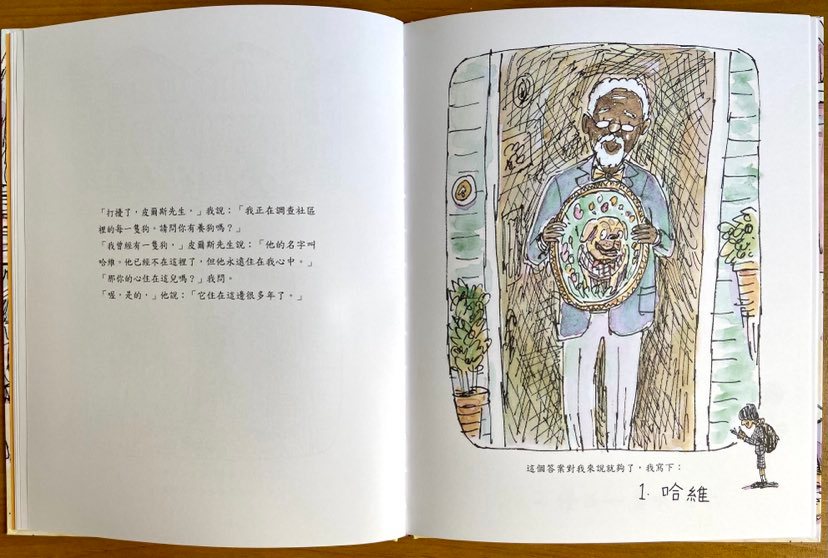 「打擾了，皮爾斯先生，」我說：「我正在調查社區
裡的每一隻狗。請問你有養狗嗎？」
「我曾經有一隻狗，」皮爾斯先生說：「他的名字叫
哈維。他已經不在這裡了，但他永遠住在我心中。」
「那你的心住在這兒嗎？」我問。
「喔，是的，」他說：「它住在這邊很多年了。」
這個答案對我來說就夠了，我寫下：
1. 哈維